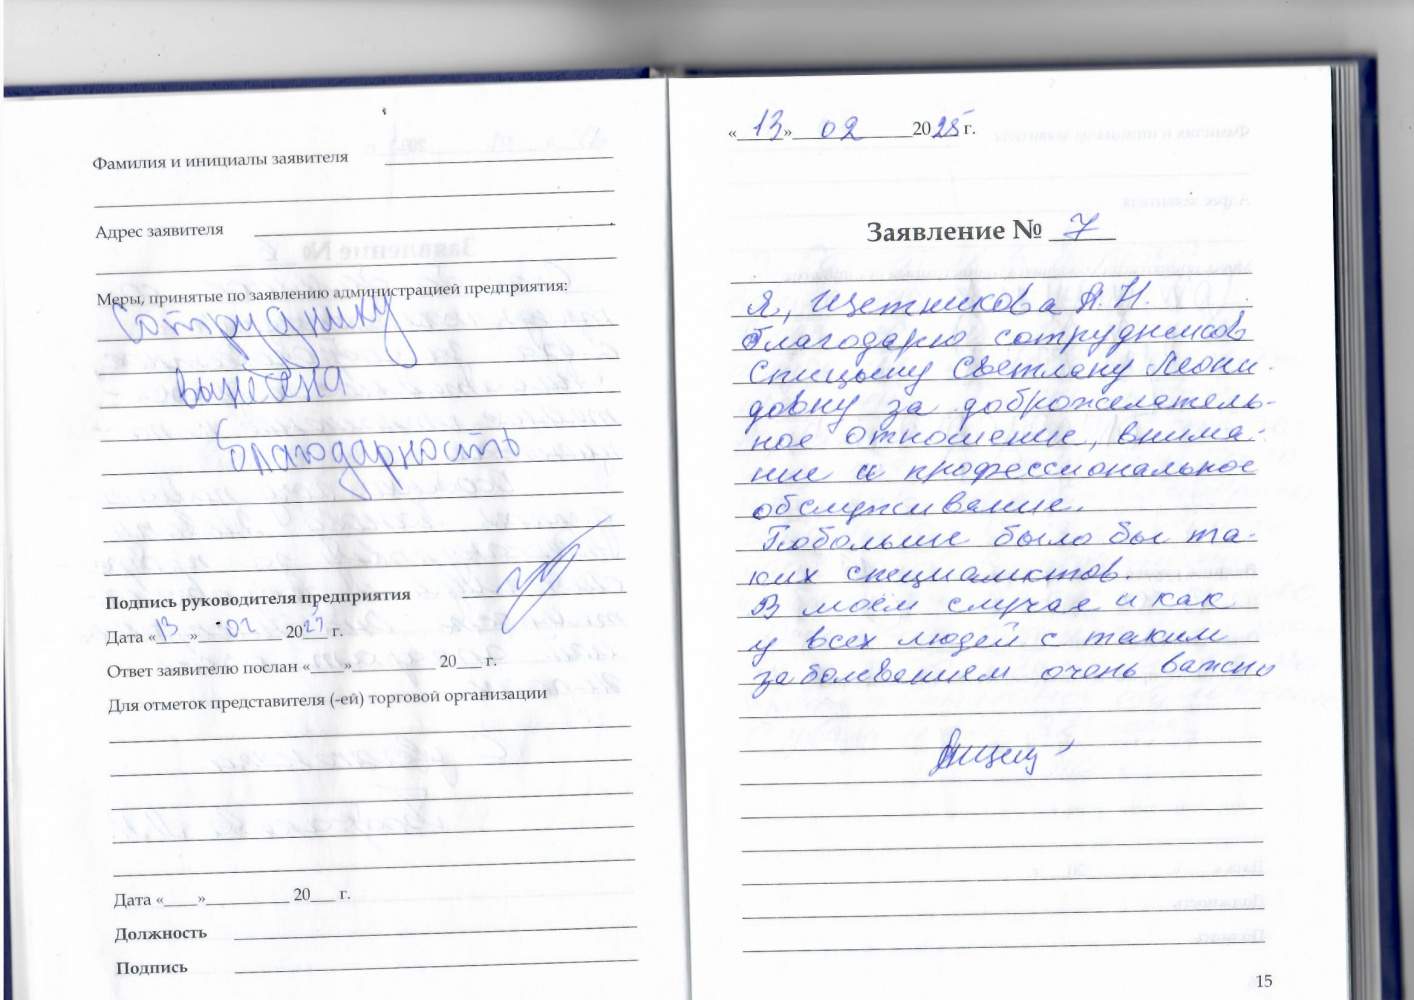 Фамилия и инициалы заявителя
Адрес заявителя
Меры, принятые по заявлению администрацией предприятия:
Сотруднику
вынесена
Благодарность
Подпись руководителя предприятия
Дата «13» 02 2025 г.
Ответ заявителю послан «____»__________ 20___ г.
Для отметок представителя (-ей) торговой организации
Дата «____»__________ 20___ г.
Должность
Подпись
«13» 02 2025 г.
Заявление № 7
Я, Щетникова А. Н.
благодарю сотрудников
Спицыну Светлану Леони
довну за доброжелатель-
ное отношение, внима-
ние и профессиональное
обслуживание.
Побольше было бы та-
ких специалистов.
В моём случае и как
у всех людей с таким
заболеванием очень важно
15